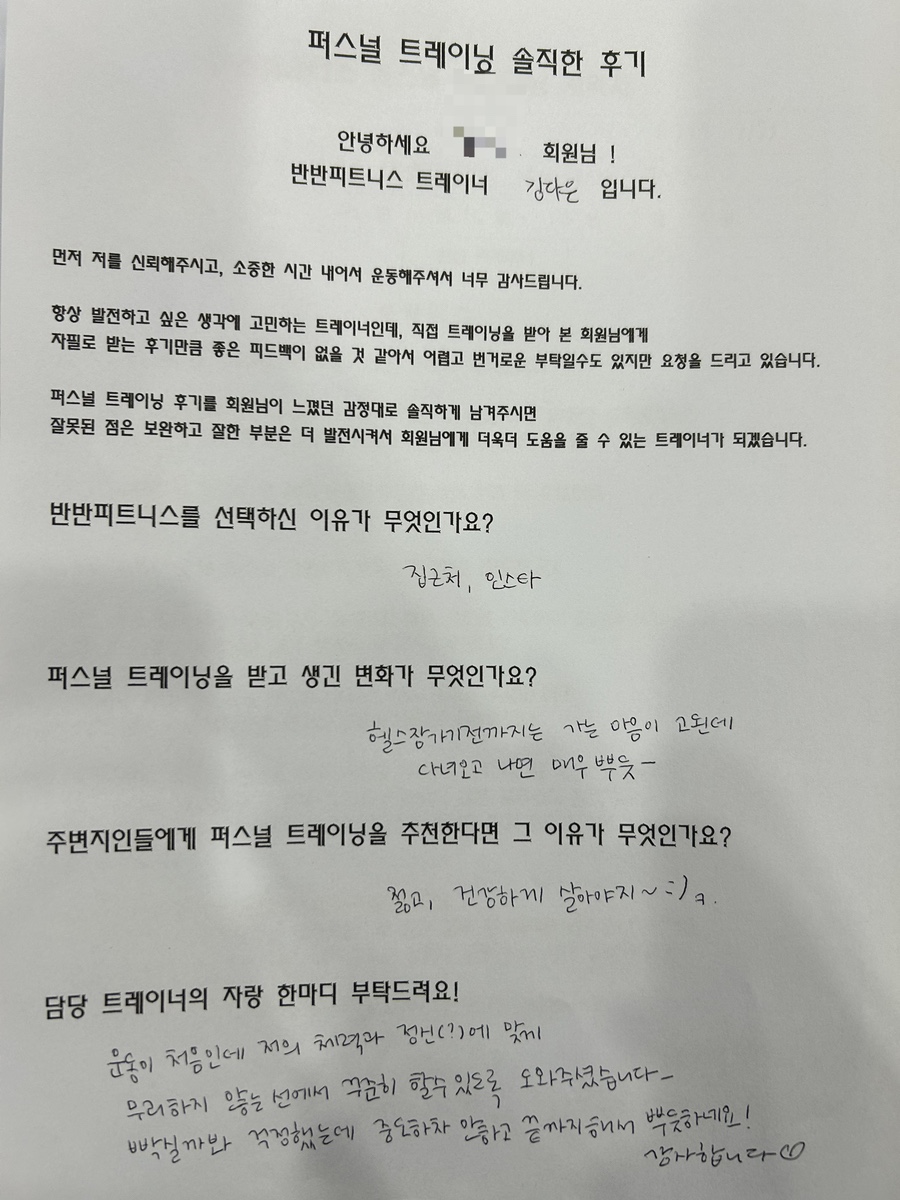 퍼스널 트레이닝 솔직한 후기
안녕하세요 회원님 !
반반피트니스 트레이너 김다은 입니다.
먼저 저를 신뢰해주시고, 소중한 시간 내어서 운동해주셔서 너무 감사드립니다.
항상 발전하고 싶은 생각에 고민하는 트레이너인데, 직접 트레이닝을 받아 본 회원님에게
자필로 받는 후기만큼 좋은 피드백이 없을 것 같아서 어렵고 번거로운 부탁일수도 있지만 요청을 드리고 있습니다.
퍼스널 트레이닝 후기를 회원님이 느꼈던 감정대로 솔직하게 남겨주시면
잘못된 점은 보완하고 잘한 부분은 더 발전시켜서 회원님에게 더욱더 도움을 줄 수 있는 트레이너가 되겠습니다.
반반피트니스를 선택하신 이유가 무엇인가요?
집근처, 인스타
퍼스널 트레이닝을 받고 생긴 변화가 무엇인가요?
헬스장가기전까지는 가는 마음이 고된데
다녀오고 나면 매우 뿌듯-
주변지인들에게 퍼스널 트레이닝을 추천한다면 그 이유가 무엇인가요?
젊고, 건강하게 살아야지~ :) ㅋ.
담당 트레이너의 자랑 한마디 부탁드려요!
운동이 처음인데 저의 체력과 정신(?)에 맞게
무리하지 않는 선에서 꾸준히 할수있도록 도와주셨습니다-
빡실까봐 걱정했는데 중도하차 안하고 끝까지해서 뿌듯하네요!
감사합니다♡